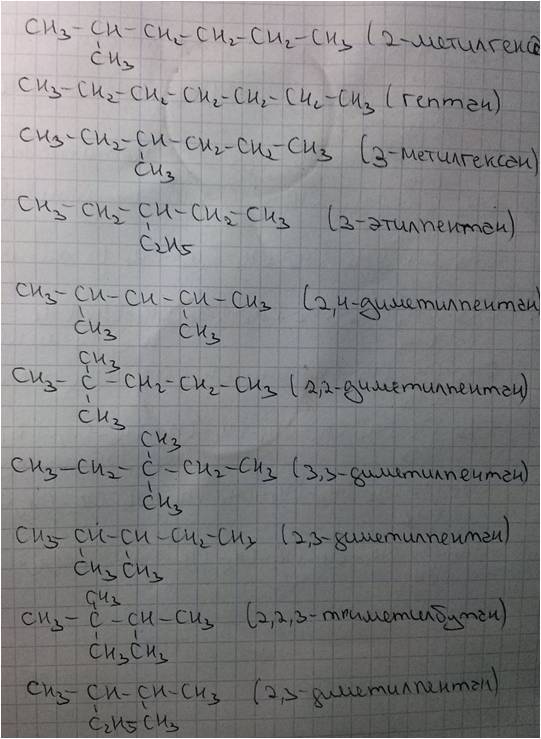 CH3-CH-CH2-CH2-CH2-CH3 (2-метилгекса
CH3
CH3-CH2-CH2-CH2-CH2-CH2-CH3 (гептан)
CH3-CH2-CH-CH2-CH2-CH3 (3-метилгексан)
CH3
CH3-CH2-CH-CH2-CH3 (3-этилпентан)
C2H5
CH3-CH-CH-CH-CH3 (2,4-диметилпентан)
CH3 CH3
CH3
CH3-C-CH2-CH2-CH3 (2,2-диметилпентан)
CH3
CH3
CH3-CH2-C-CH2-CH3 (3,3-диметилпентан)
CH3
CH3-CH-CH-CH2-CH3 (2,3-диметилпентан)
CH3 CH3
CH3
CH3-C-CH-CH3 (2,2,3-триметилбутан)
CH3 CH3
CH3-CH-CH-CH3 (2,3-диметилпентан)
C2H5 CH3